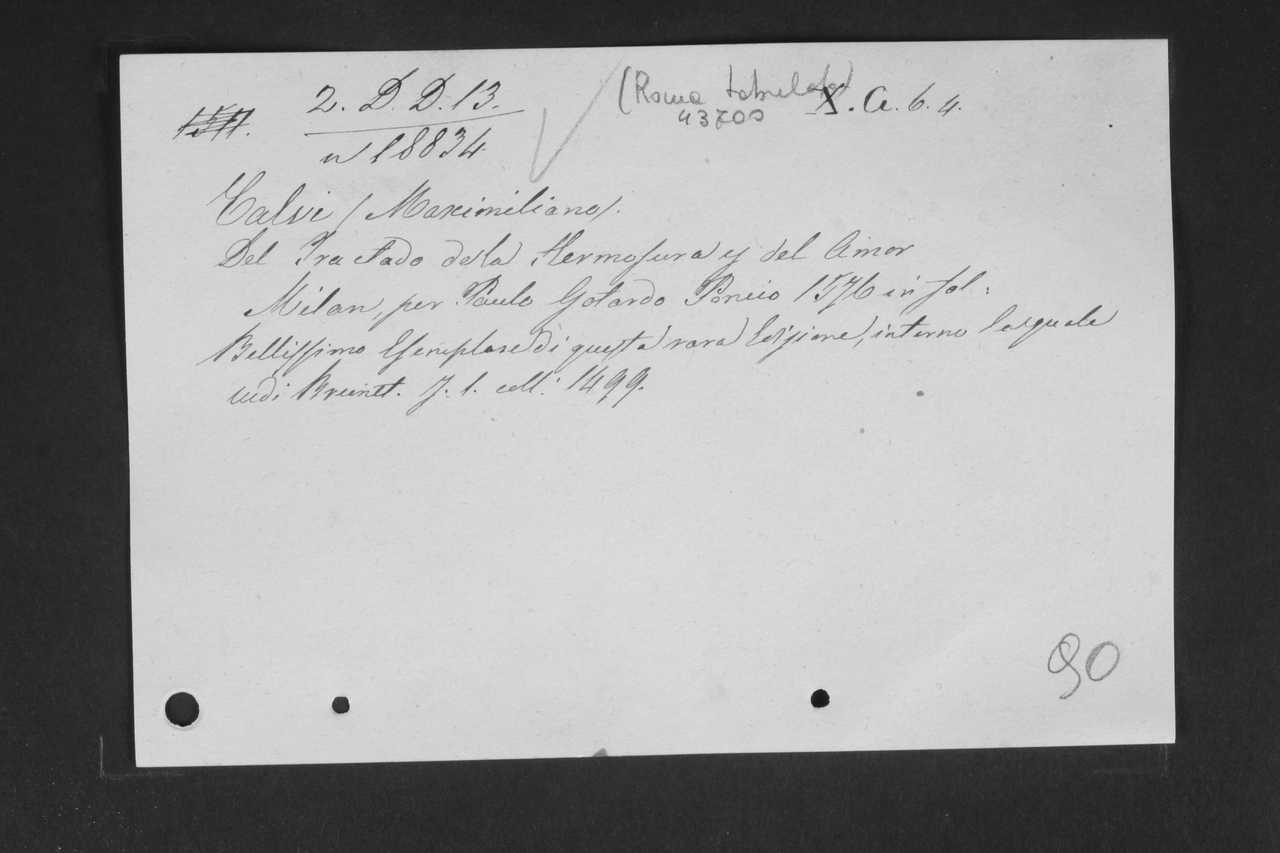 2. D. D. 13.
(Roma X. A. 6. 4.
43700
n 18834
Calvi (Maximiliano).
Del Tractado de la Hermosura y del Amor
Milan, per Paulo Gotardo Poncio 1576 in fol:
Bellissimo Esemplare di questa rara Edizione, intorno la quale
vedi Brunet. T. 1. coll: 1499.
90